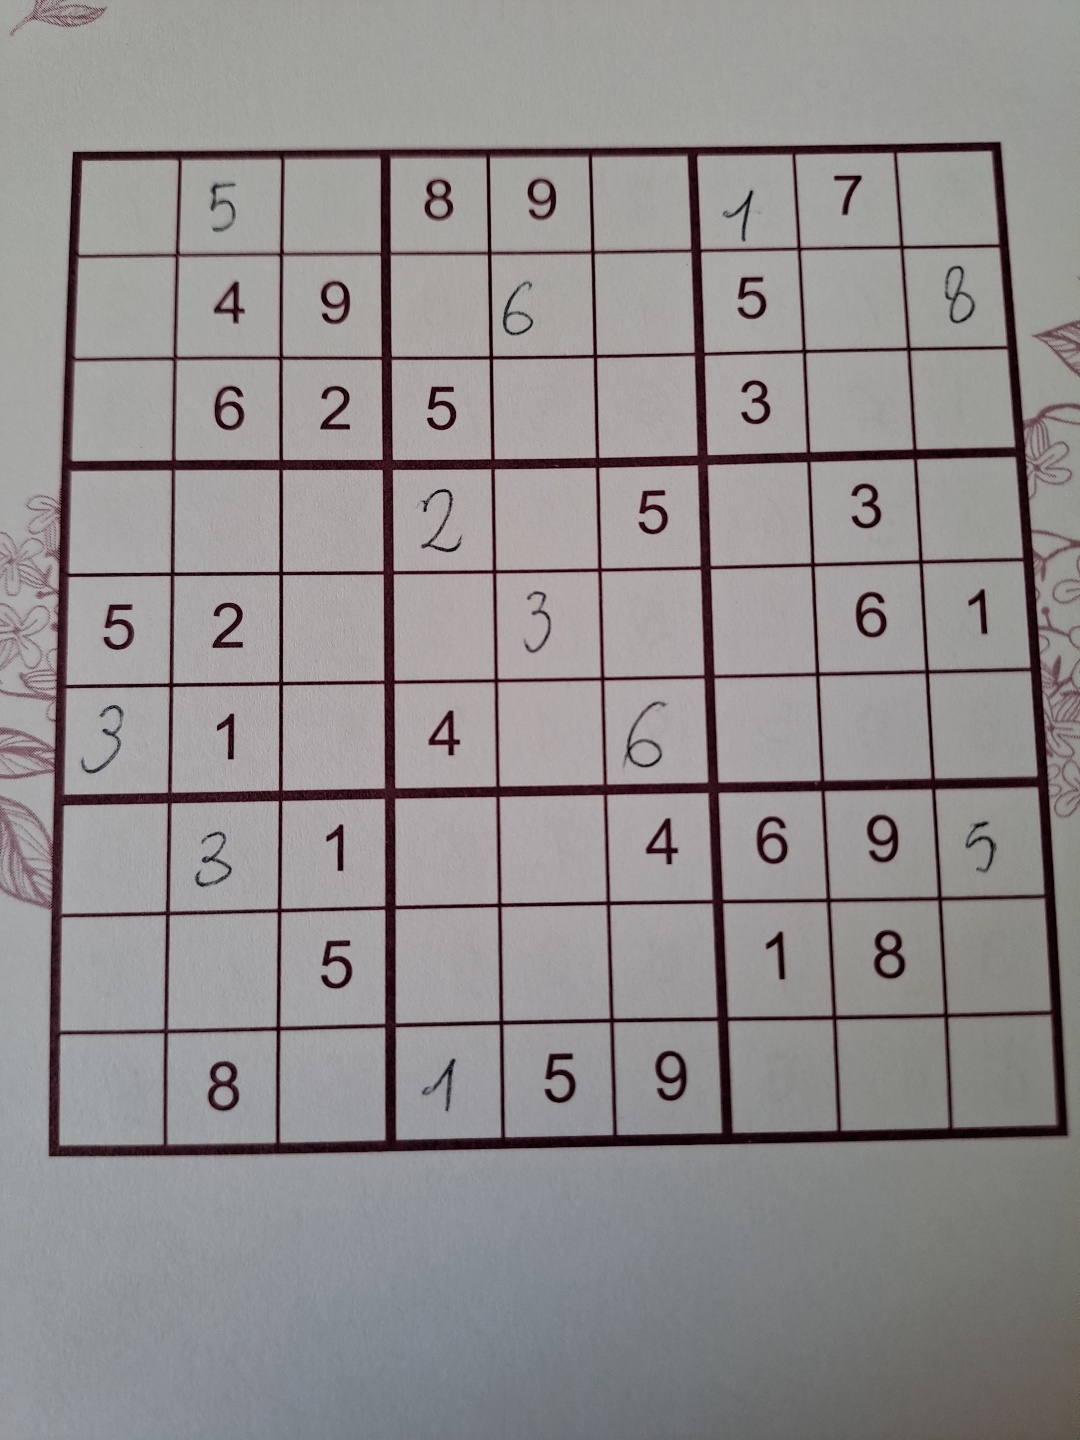 5 8 9 1 7
4 9 6 5 8
6 2 5 3
2 5 3
5 2 3 6 1
3 1 4 6
3 1 4 6 9 5
5 1 8
8 1 5 9